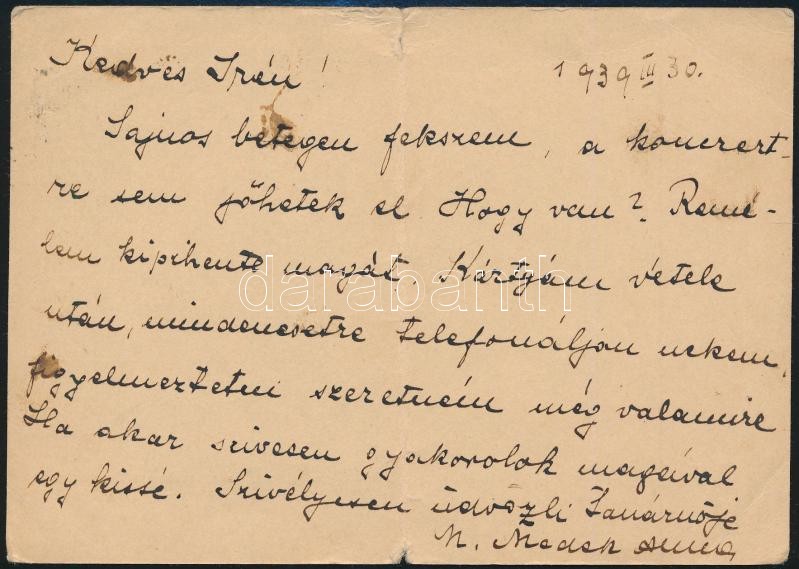 Kedves Irén! 1939 III 30.
Sajnos betegen fekszem, a koncert-
re sem jőhetek el Hogy van? Remé-
lem kipihente magát. Kártyám vétele
után, mindenesetre telefonáljon nekem,
figyelmeztetni szeretném még valamire
Ha akar szivesen gyakorolok magával
egy kissé. Szivélyesen üdvözli Tanárnője
M. Medek Anna
darabanth